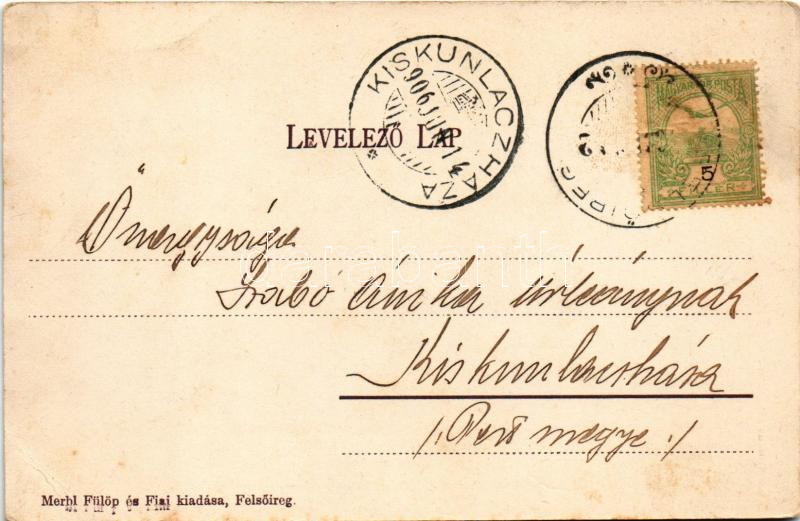 KISKUNLACZHÁZA
906
LEVELEZŐ LAP
MAGYAR KIR. POSTA
5
Őnagysága
Szabó Anika úrleánynak
Kiskunlaczháza
/: Pest megye :/
Merbl Fülöp és Fiai kiadása, Felsőireg.
darabanth